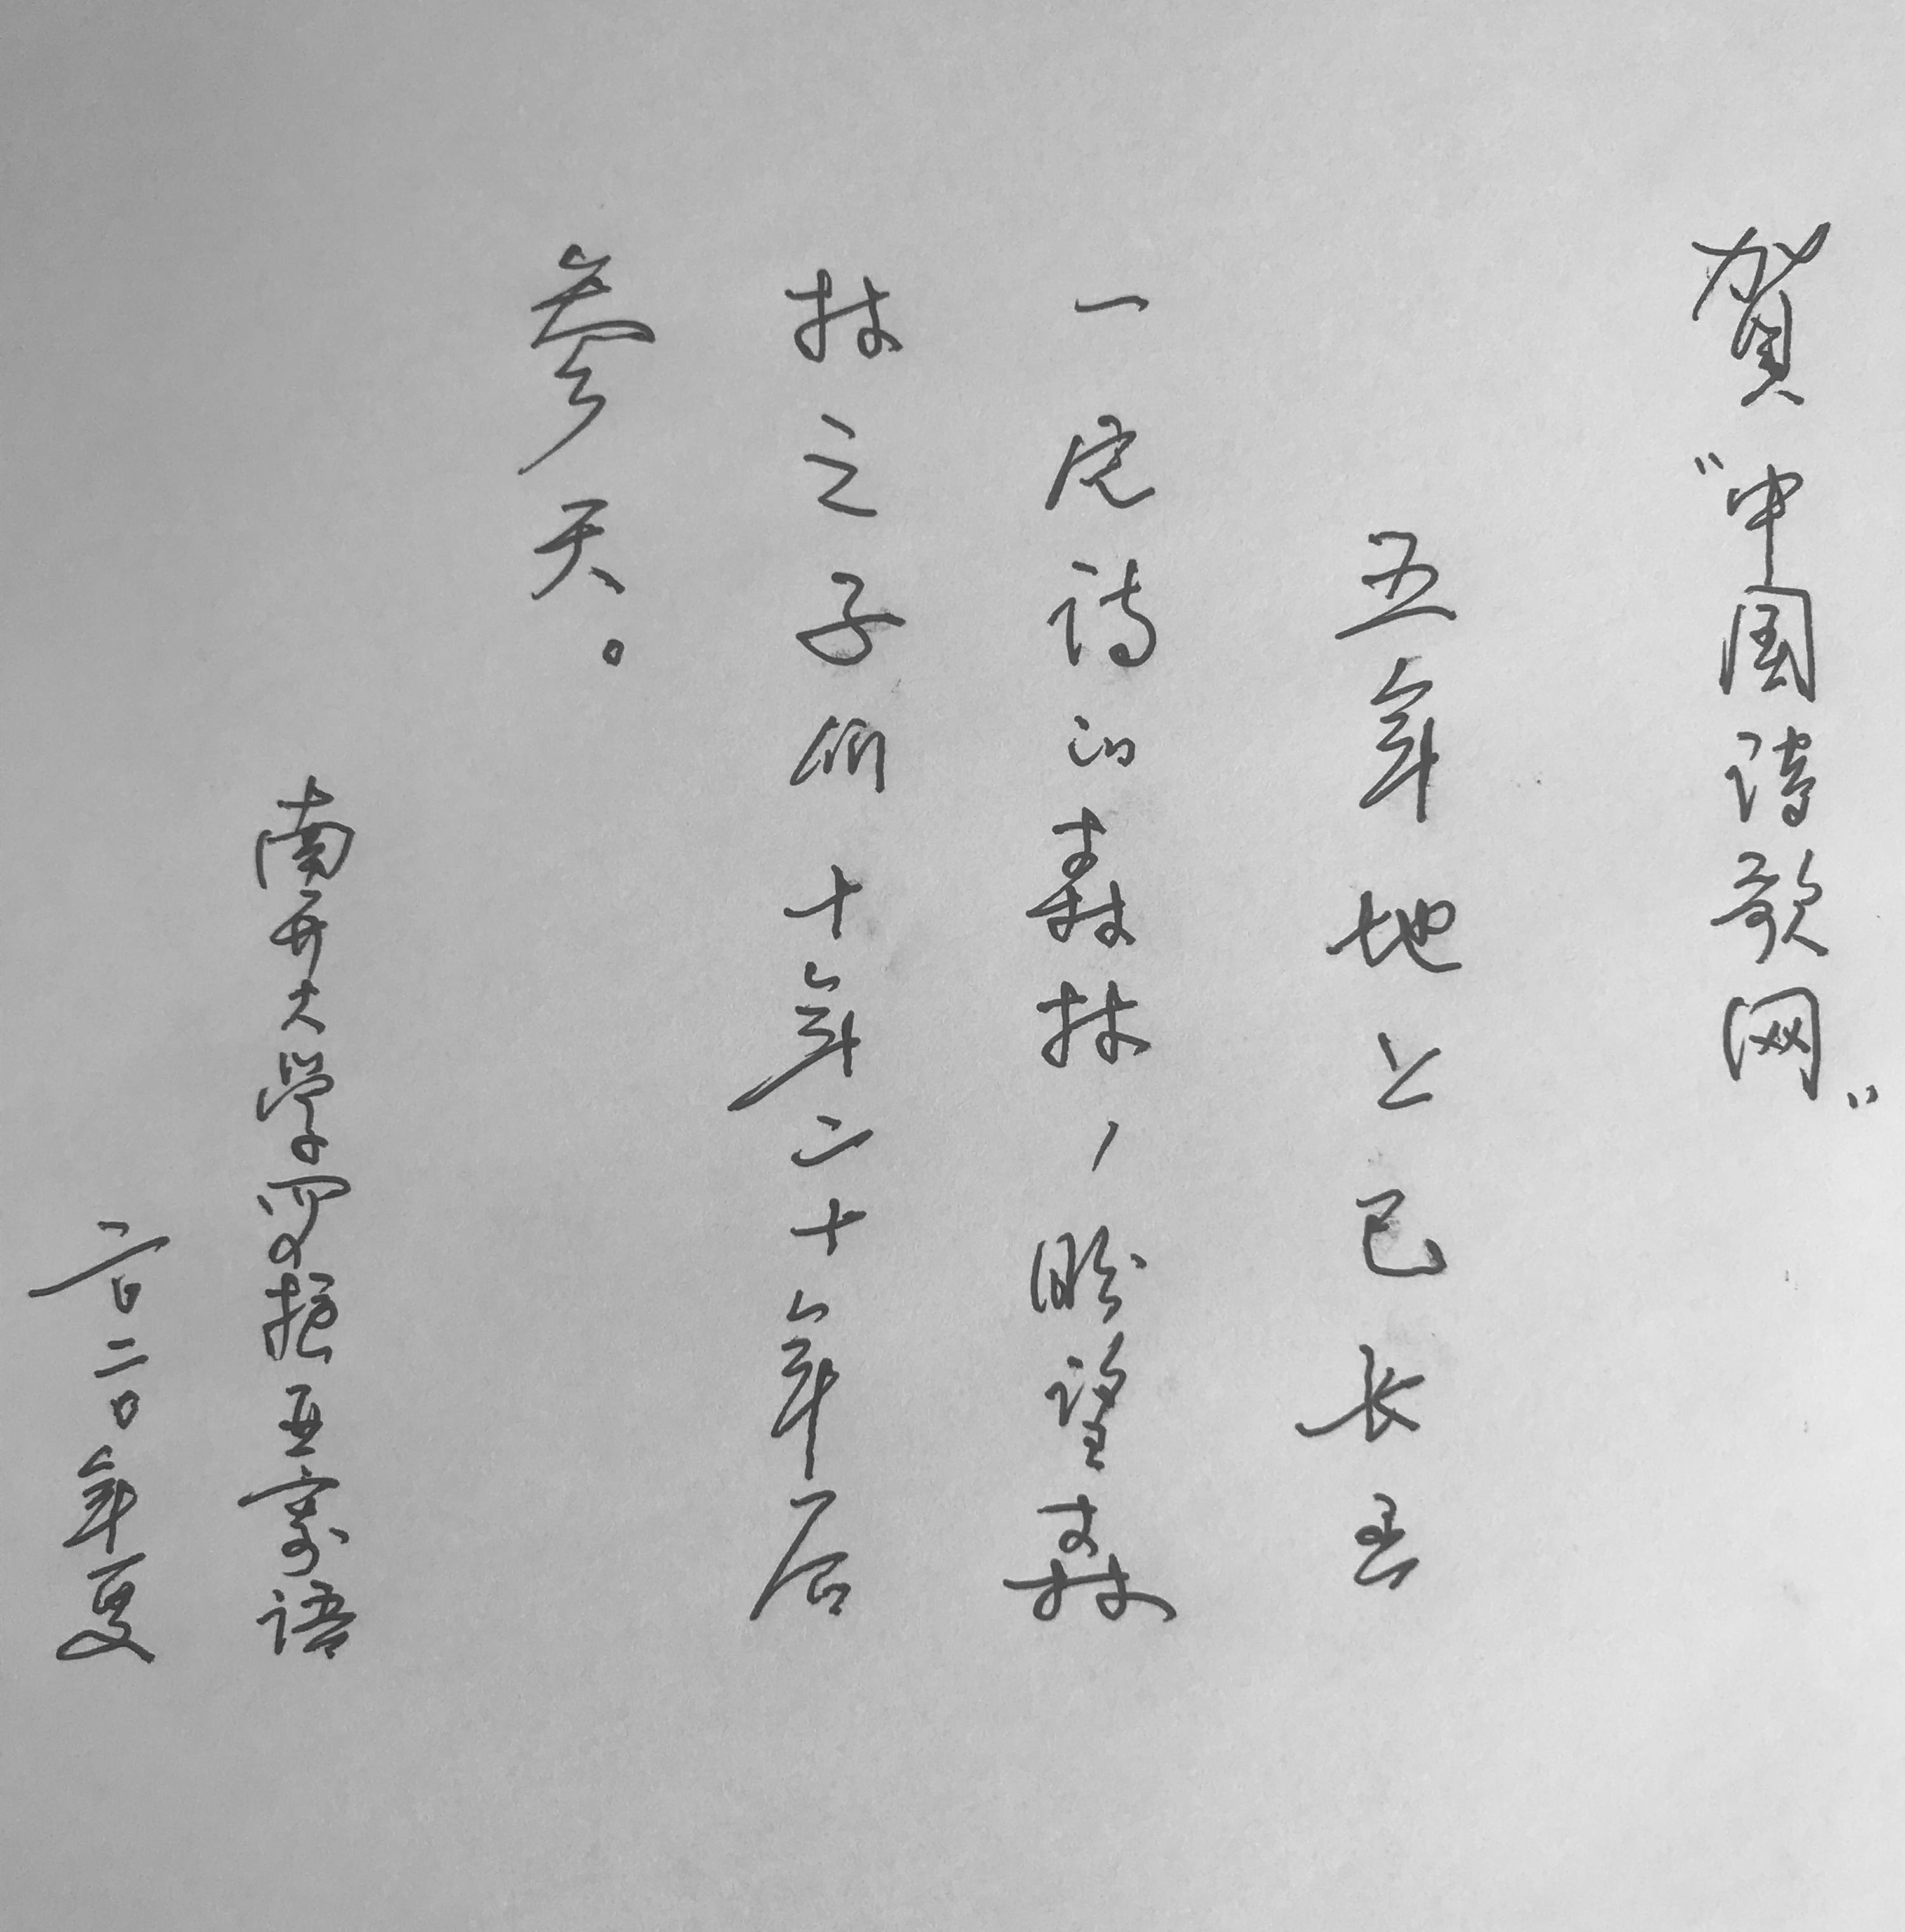 贺“中国诗歌网”
五年地上已长出
一座诗的森林，盼望森
林之子们十年二十年后
参天。
南开大学罗振亚寄语
二〇二〇年夏